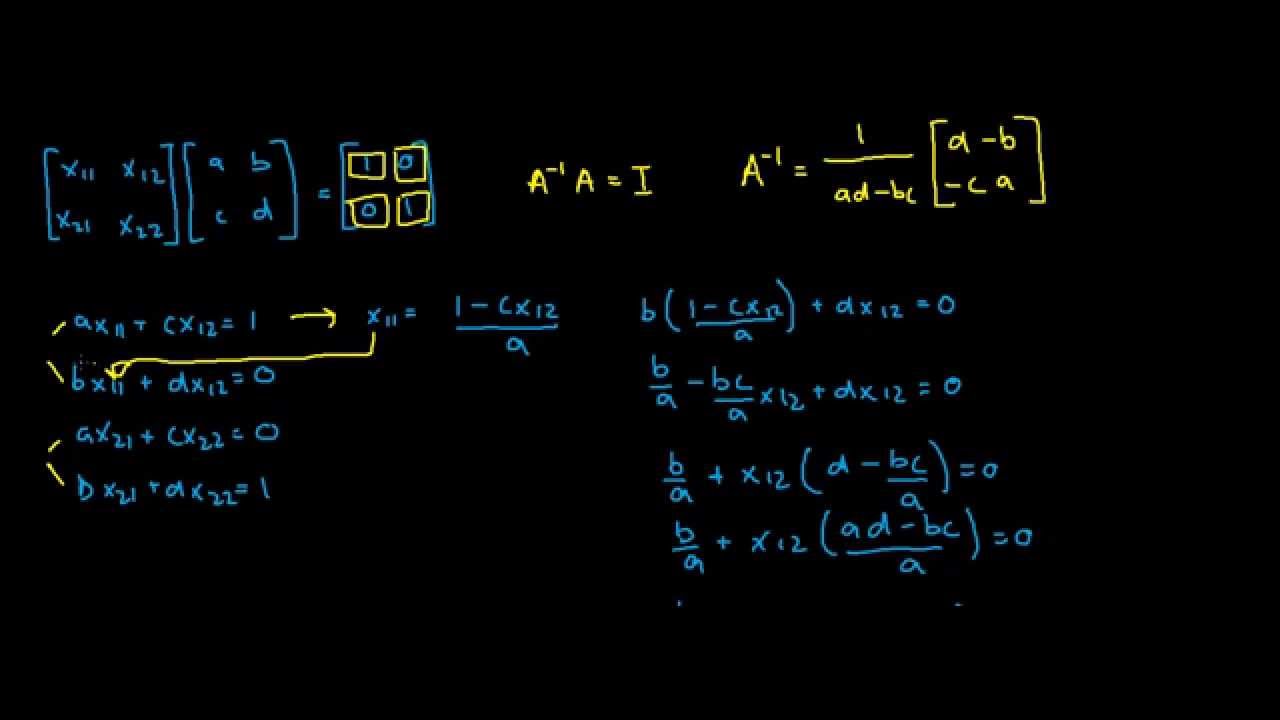 [x₁₁ x₁₂ [a b = [1 0 A⁻¹ A = I A⁻¹ = 1/(ad-bc) [a -b
x₂₁ x₂₂] c d] 0 1] -c a]
ax₁₁ + cx₁₂ = 1 → x₁₁ = (1 - cx₁₂)/a
bx₁₁ + dx₁₂ = 0
ax₂₁ + cx₂₂ = 0
bx₂₁ + dx₂₂ = 1
b((1 - cx₁₂)/a) + dx₁₂ = 0
b/a - bc/a x₁₂ + dx₁₂ = 0
b/a + x₁₂(d - bc/a) = 0
b/a + x₁₂((ad - bc)/a) = 0